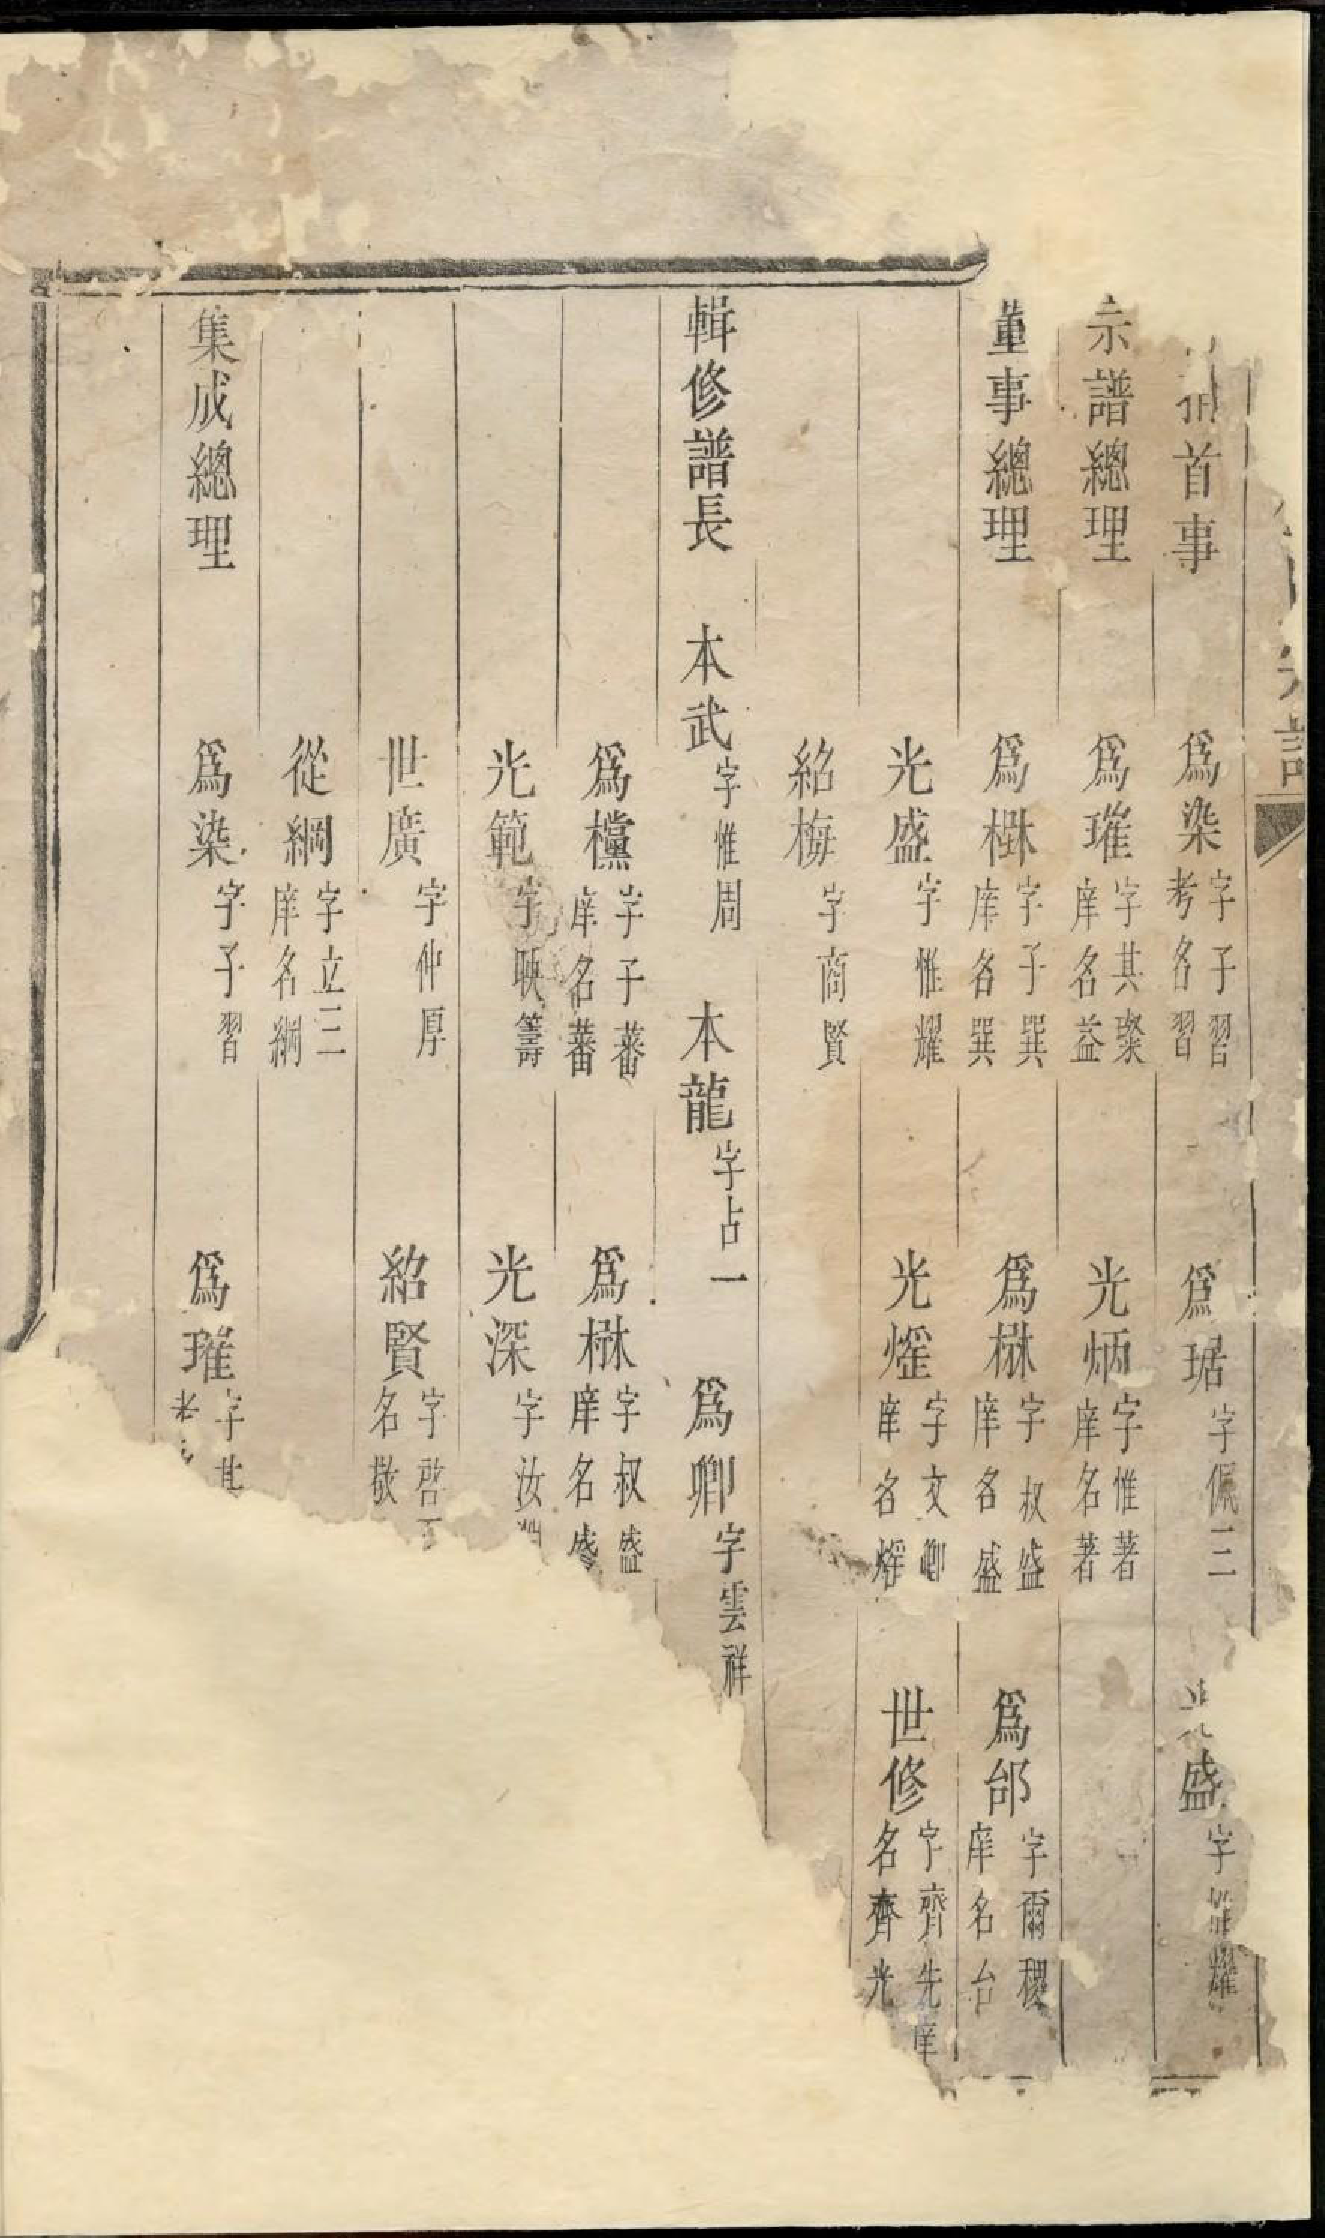 譜
首事 爲染 字子習 考名習 爲琚 字佩三 盛 字 耀
宗譜總理 爲璀 字其璨 庠名益 光炳 字惟著 庠名著
董事總理 爲楙 字子巽 庠名巽 爲楙 字叔盛 庠名盛 爲邰 字爾稷 庠名台
光盛 字惟耀 光燿 字文卿 庠名燿 世修 字齊先庠 名齊光
紹梅 字商賢
輯修譜長 本武 字惟周 本龍 字占一 爲卿 字雲祥
爲欓 字子蕃 庠名蕃 爲楙 字叔盛 庠名盛
光範 字映籌 光深 字汝
世廣 字仲厚 紹賢 字啓 名敬
從綱 字立三 庠名綱
集成總理 爲染 字子習 爲璀 字其